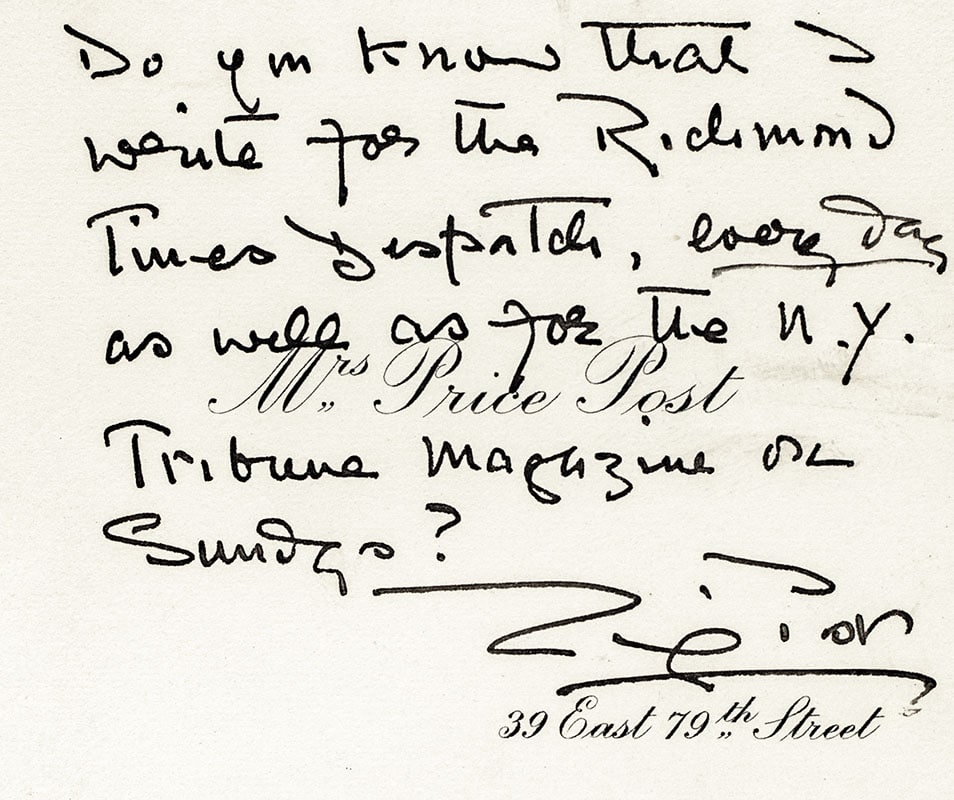 Do you know that I
write for the Richmond
Times Dispatch, every day
as well as for the N.Y.
Mrs Price Post
Tribune Magazine on
Sundays?
39 East 79th Street